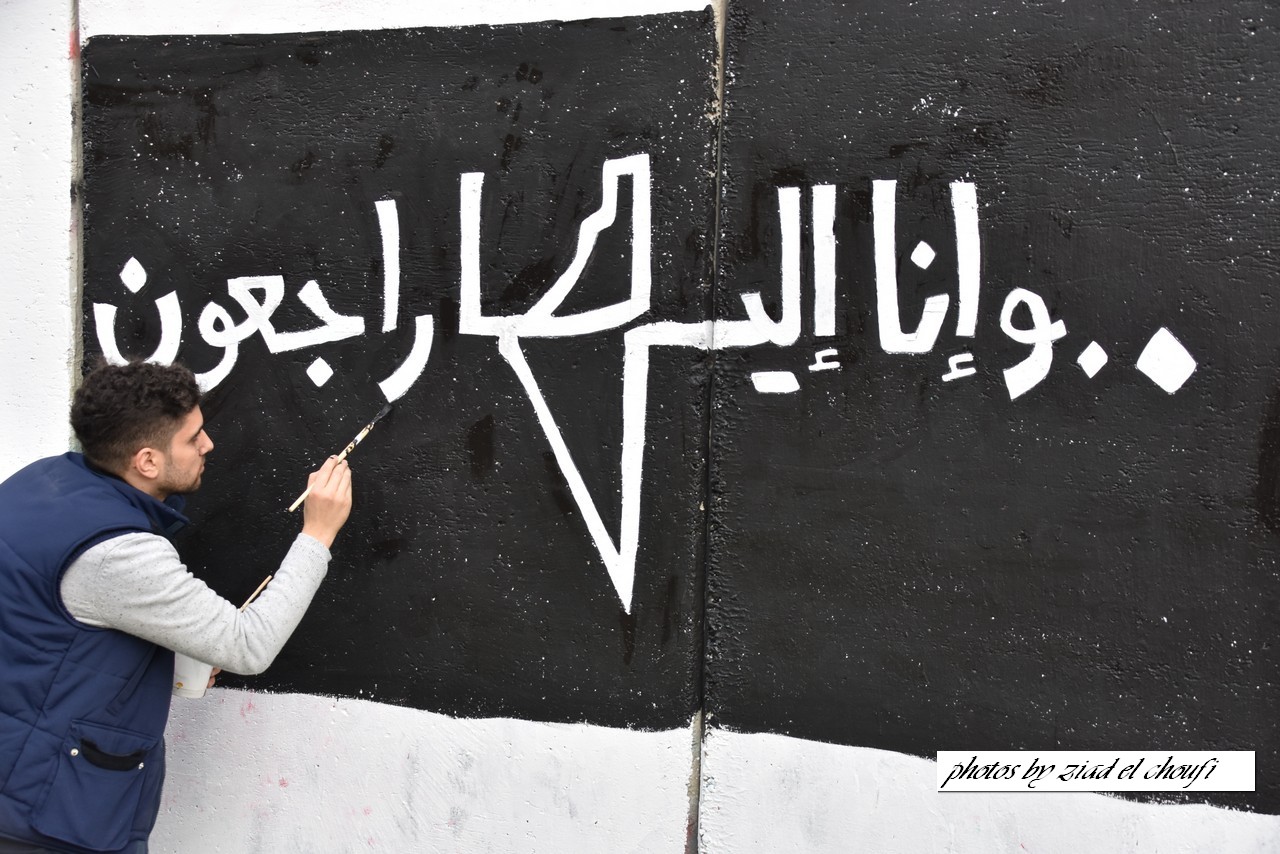 ..وإنا إليها راجعون
photos by ziad el choufi